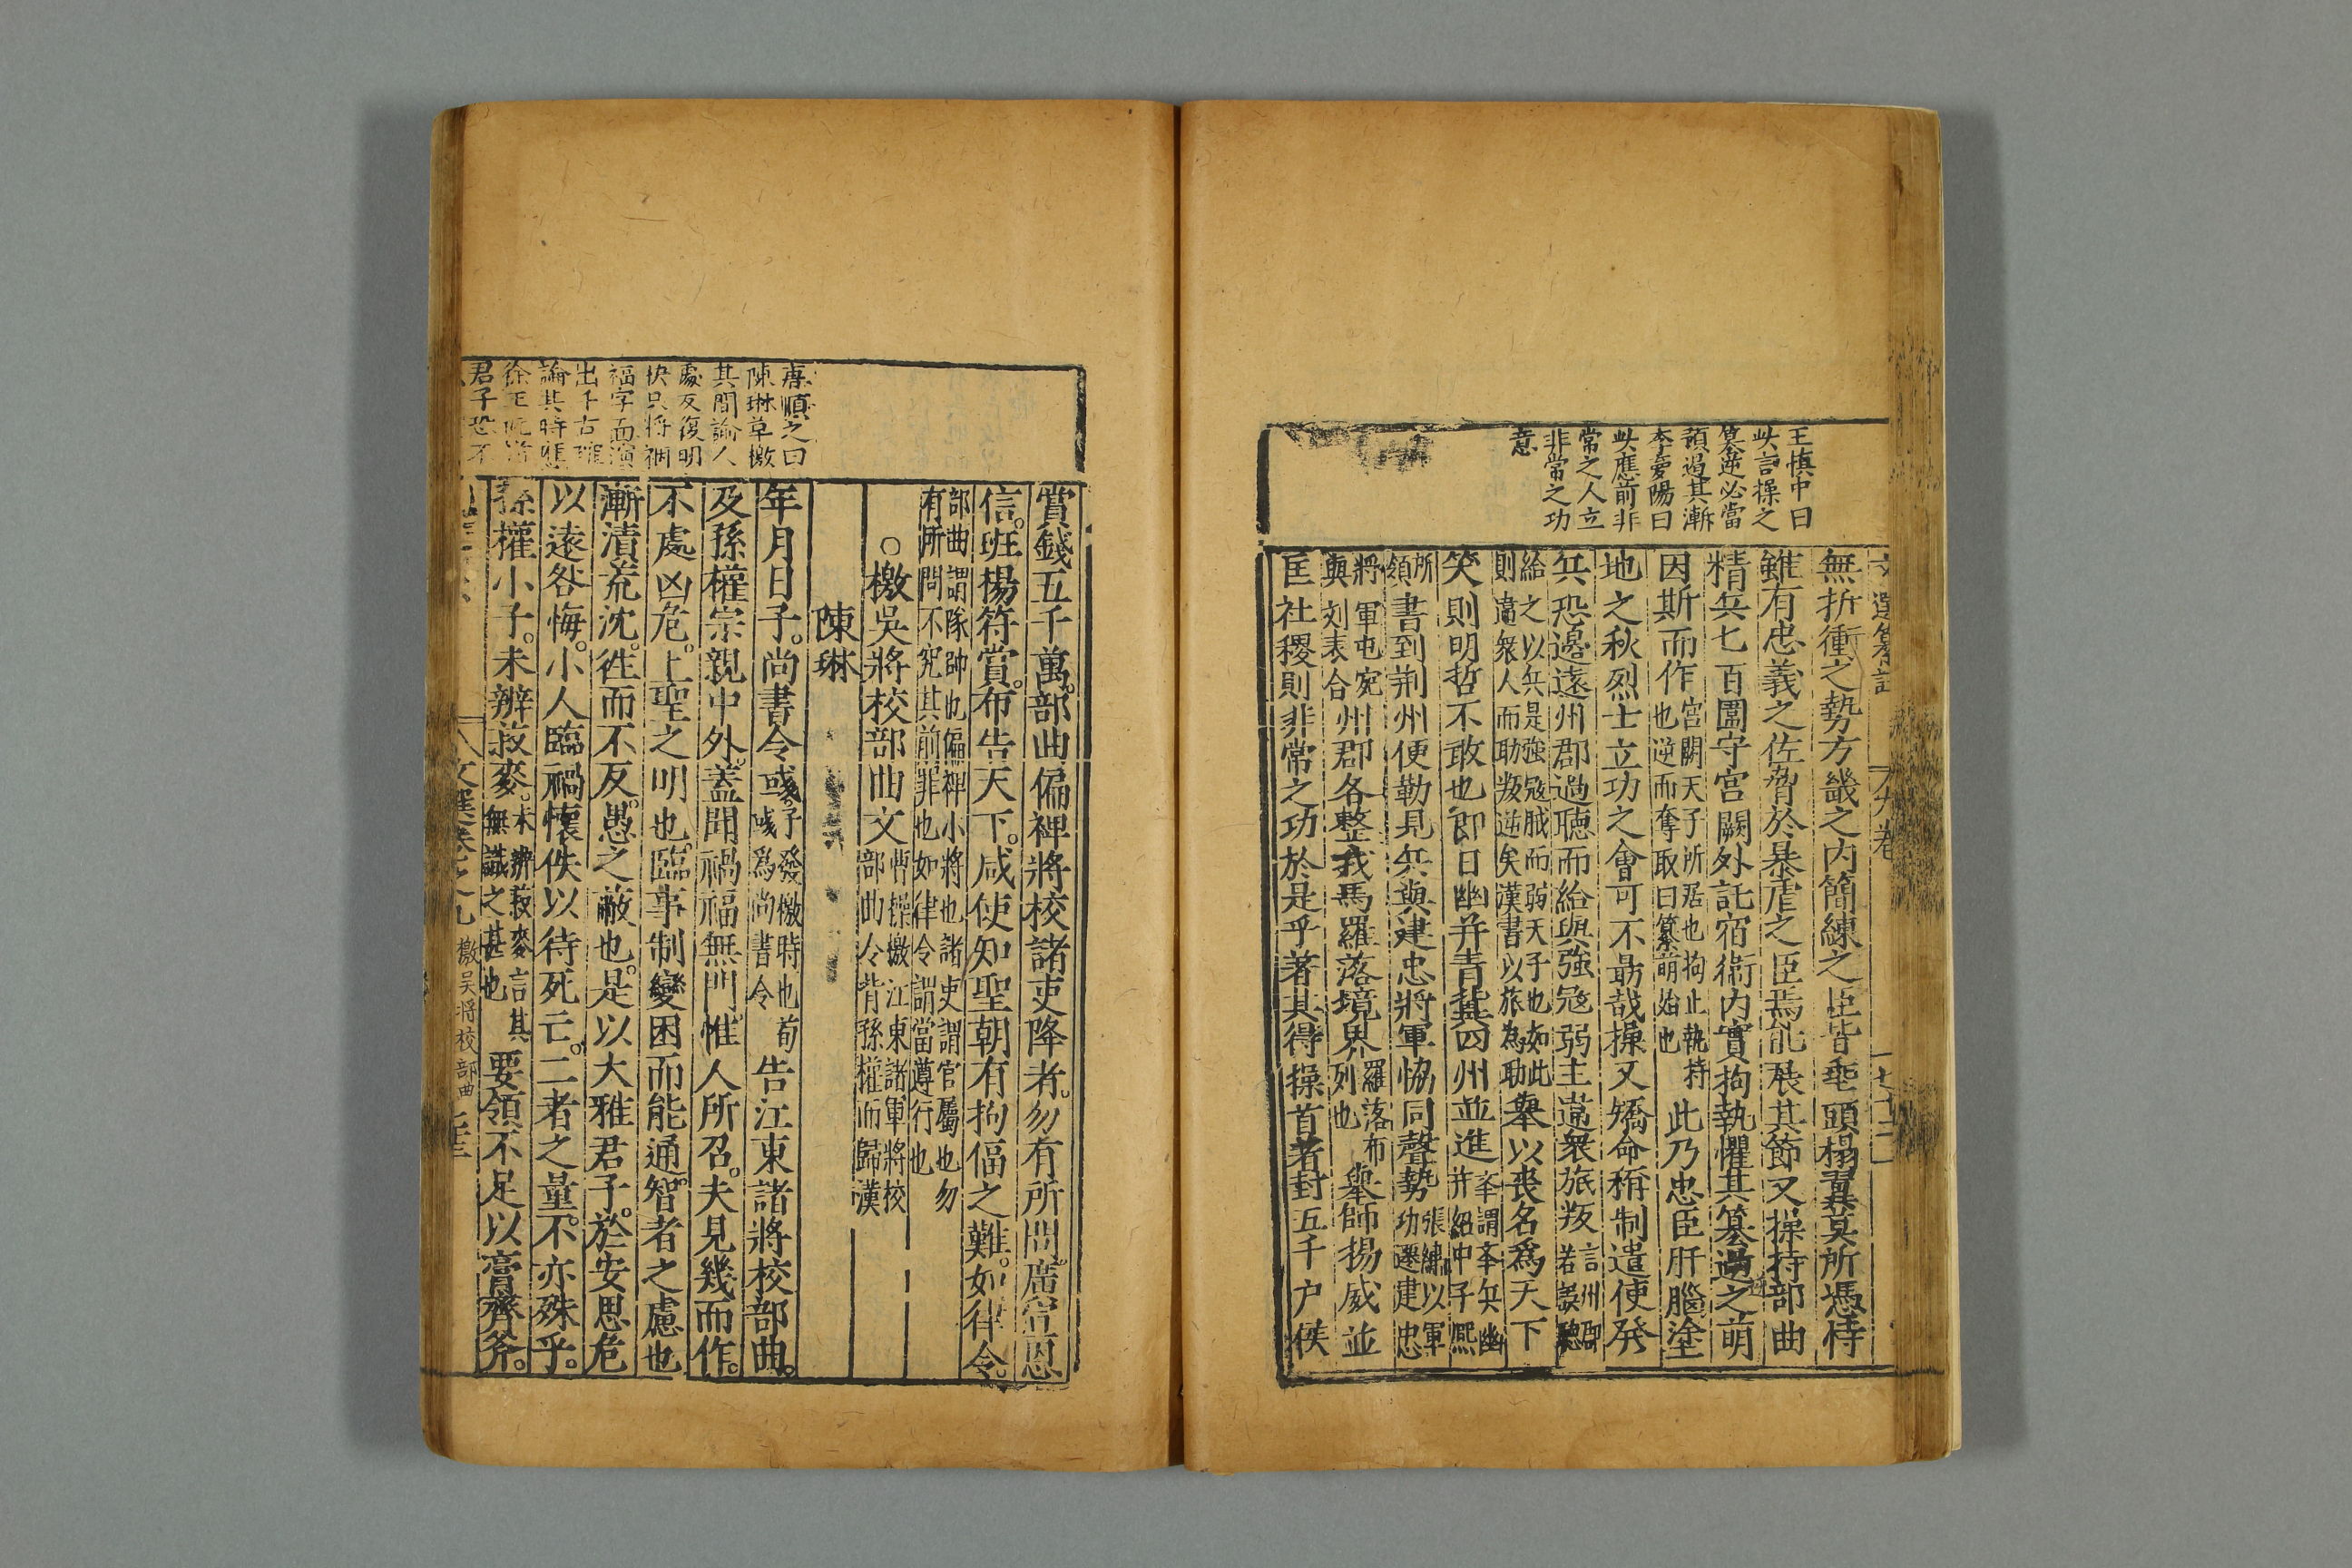 王慎中曰
此言操之
篡逆必當
預遏其漸
李愛陽曰
此應前非
常之人立
非常之功
意
無折衝之勢方畿之内簡練之臣皆垂頭搨翼莫所憑恃
雖有忠義之佐脅於暴虐之臣焉能展其節又操持部曲
精兵七百圍守宮闕外託宿衛内實拘執懼其篡逆之萌
因斯而作宮闕天子所居也拘止執持也逆而奪取曰篡萌始也此乃忠臣肝腦塗
地之秋烈士立功之會可不勗哉操又矯命稱制遣使發
兵恐邊遠州郡過聽而給與強寇弱主違衆旅叛言州郡若誤聽
給之以兵是強寇賊而弱天子也如此則違衆人而助叛逆矣漢書以旅為助舉以喪名爲天下
笑則明哲不敢也即日幽并青冀四州並進
所領書到荆州便勒見兵與建忠將軍恊同聲勢張繡以軍功遷建忠
將軍屯宛與刘表合州郡各整戎馬羅落境界羅落布列也舉師揚威並
匡社稷則非常之功於是乎著其得操首者封五千户侯
賞錢五千萬。部曲偏裨將校諸吏降者。勿有所問。廣宣恩
信。班揚符賞。布告天下。咸使知聖朝有拘偪之難。如律令。
部曲謂隊帥也偏裨小將也諸吏謂官屬也勿
有所問不究其前罪也如律令謂當遵行也
○檄吳將校部曲文曹操檄江東諸軍將校部曲令背孫權而歸漢
陳琳
年月日子。尚書令彧子發檄時也荀彧爲尚書令告江東諸將校部曲。
及孫權宗親中外。蓋聞禍福無門。惟人所召。夫見幾而作。
不處凶危。上聖之明也。臨事制變困而能通。智者之慮也
漸漬荒沈。往而不反。愚之蔽也。是以大雅君子。於安思危
以遠咎悔。小人臨禍懷佚以待死亡。二者之量。不亦殊乎。
孫權小子。未辨菽麥。不辨菽麥言其無識之甚也要領不足以膏齊斧。
文選卷之九 檄吳將校部曲
唐順之曰
陳琳草檄
其間諭人
處反復明
快只將禍
福字面演